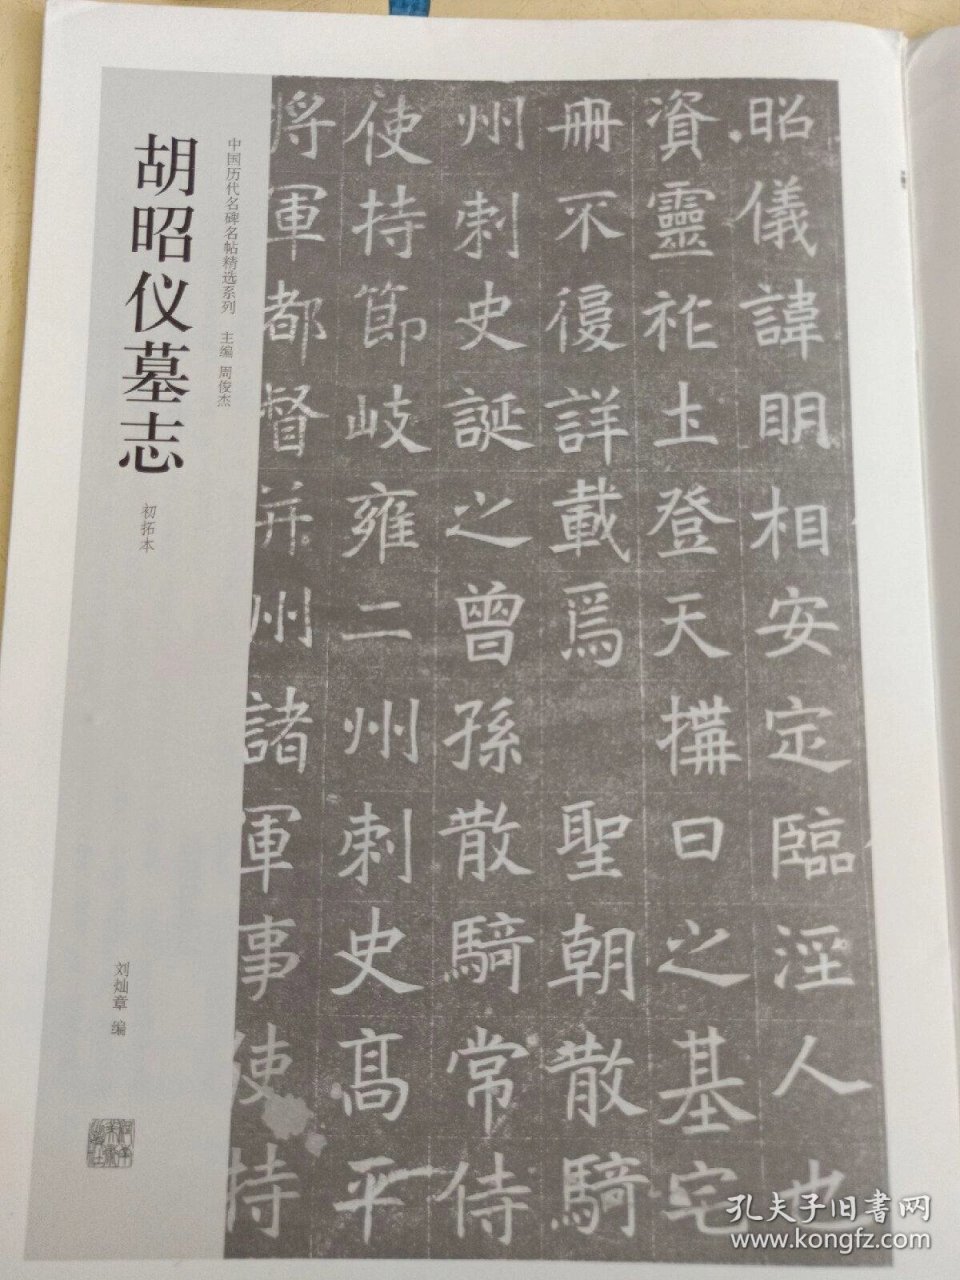 昭儀諱明相安定臨涇人也
資靈祚土登天構日之基宅
冊不復詳載焉聖朝散騎
州刺史誕之曾孫散騎常侍
使持節岐雍二州刺史高平
將軍都督并州諸軍事使持
中国历代名碑名帖精选系列 主编 周俊杰
胡昭仪墓志
初拓本
刘灿章 编
孔夫子旧书网
www.kongfz.com